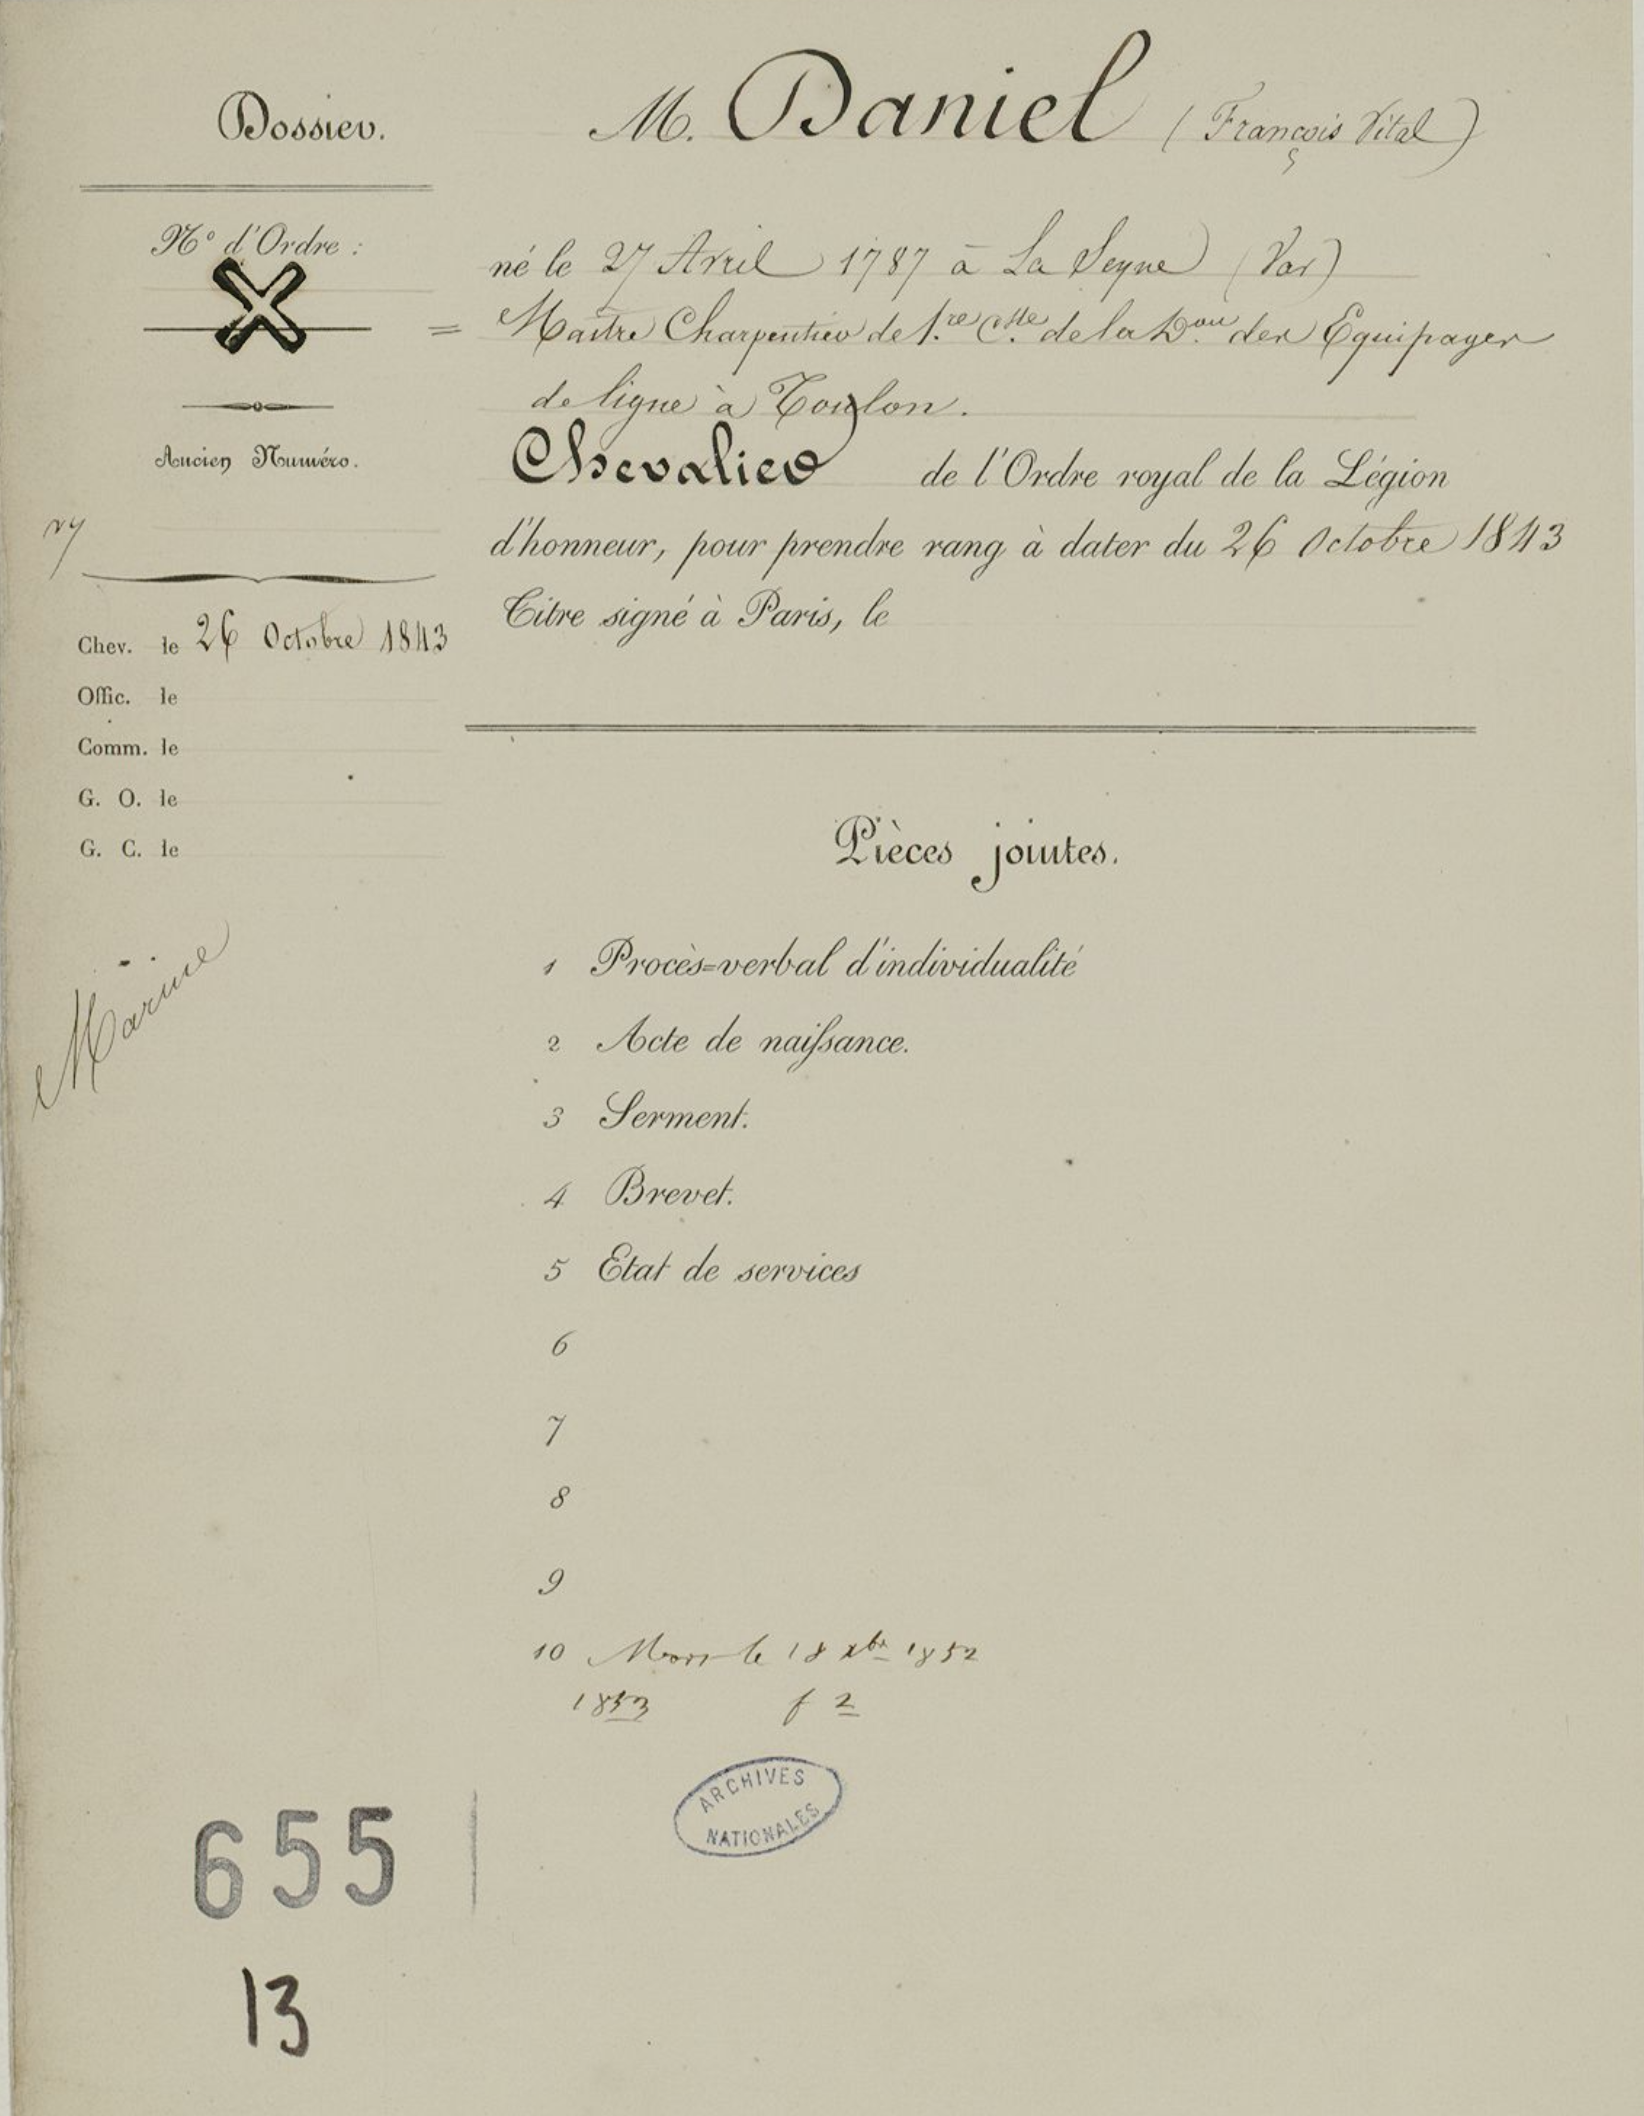 Dossier.
N° d'Ordre :
Ancien Numéro.
Chev. le 26 Octobre 1843
Offic. le
Comm. le
G. O. le
G. C. le
Marine
M. Daniel (François Vital)
né le 27 Avril 1787 à La Seyne (Var)
= Maitre Charpentier de 1.re C.lle de la D.on des Equipages
de ligne à Toulon.
Chevalier de l'Ordre royal de la Légion
d'honneur, pour prendre rang à dater du 26 Octobre 1843
Titre signé à Paris, le
Pièces jointes.
1 Procès=verbal d'individualité
2 Acte de naiſsance.
3 Serment.
4 Brevet.
5 Etat de services
6
7
8
9
10 Mort le 18 xbre 1852
1853 f 2
ARCHIVES
NATIONALES
655
13